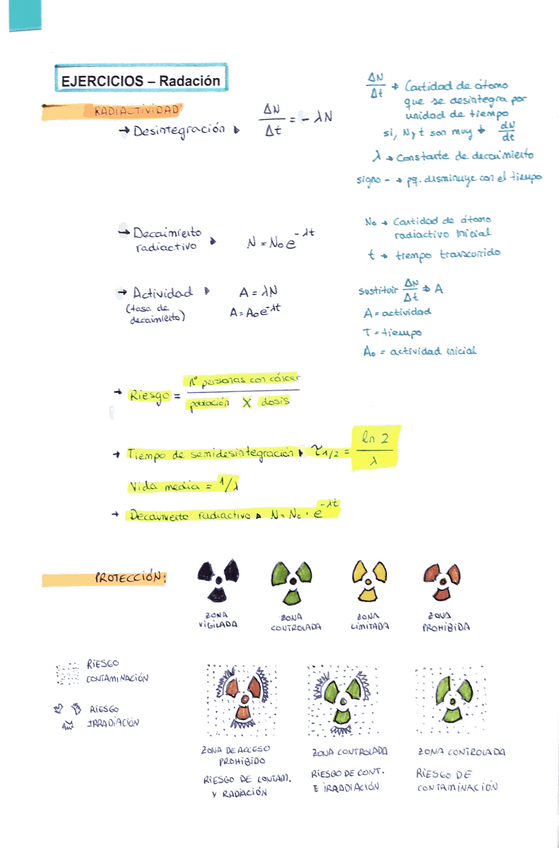 EJERCICIOS – Radación
RADIACTIVIDAD
→ Desintegración ▶ ΔN/Δt = - λN
ΔN/Δt → Cantidad de átomo
que se desintegra por
unidad de tiempo
si, N y t son muy ↓ dN/dt
λ → Constante de decaimiento
signo - → pq. disminuye con el tiempo
→ Decaimiento
radiactivo ▶ N = N₀e^-λt
N₀ → Cantidad de átomo
radiactivo inicial
t → tiempo transcurrido
→ Actividad ▶ A = λN
(tasa de
decaimiento) A = A₀e^-λt
Sustituir ΔN/Δt ⇒ A
A = actividad
T = tiempo
A₀ = actividad inicial
→ Riesgo = nº personas con cáncer / población X dosis
→ Tiempo de semidesintegración ▶ τ1/2 = ln 2 / λ
Vida media = 1/λ
→ Decaimiento radiactivo ▶ N = N₀ · e^-λt
PROTECCIÓN:
ZONA
VIGILADA
ZONA
CONTROLADA
ZONA
LIMITADA
ZONA
PROHIBIDA
RIESGO
CONTAMINACIÓN
RIESGO
IRRADIACIÓN
ZONA DE ACCESO
PROHIBIDO
RIESGO DE CONTAM.
Y RADIACIÓN
ZONA CONTROLADA
RIESGO DE CONT.
E IRRADIACIÓN
ZONA CONTROLADA
RIESGO DE
CONTAMINACIÓN